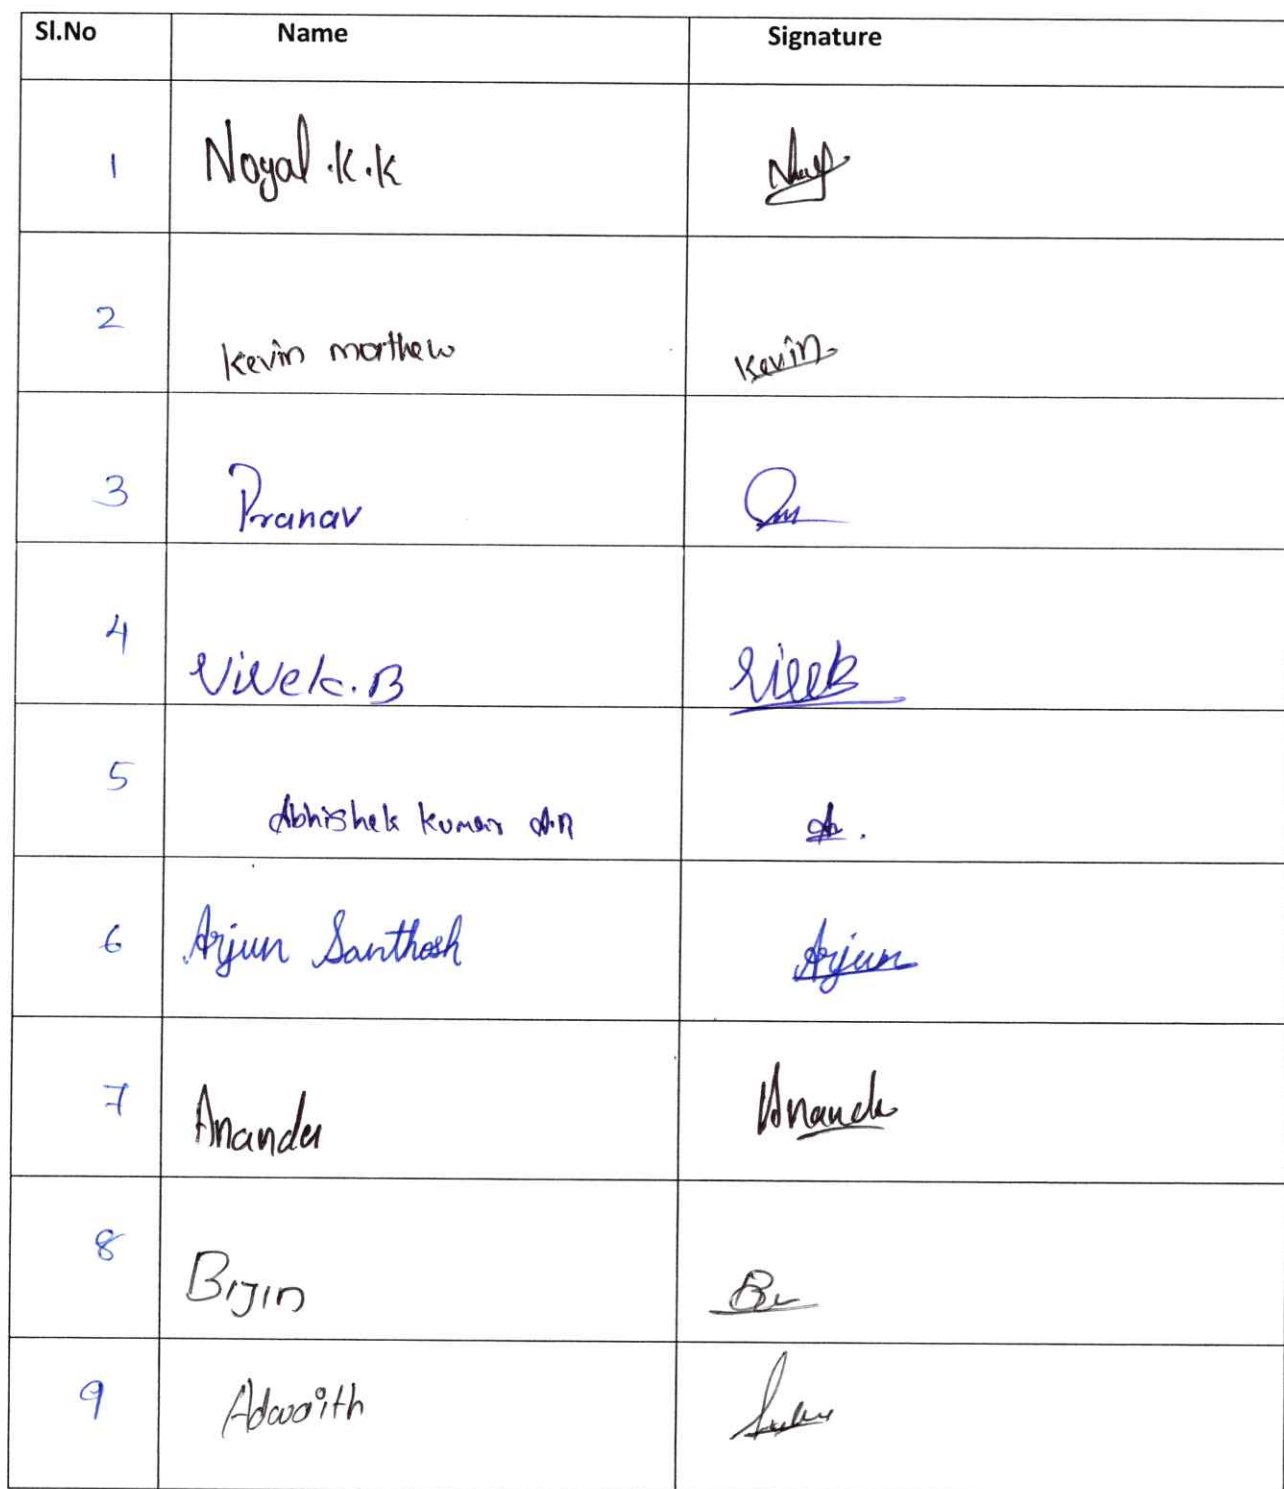 Sl.No Name Signature
1 Noyal .K.K
2 Kevin mathew Kevin
3 Pranav
4 Vivek.B
5 Abhishek Kumar A.N
6 Arjun Santhosh Arjun
7 Anandu
8 Bijin
9 Adwaith